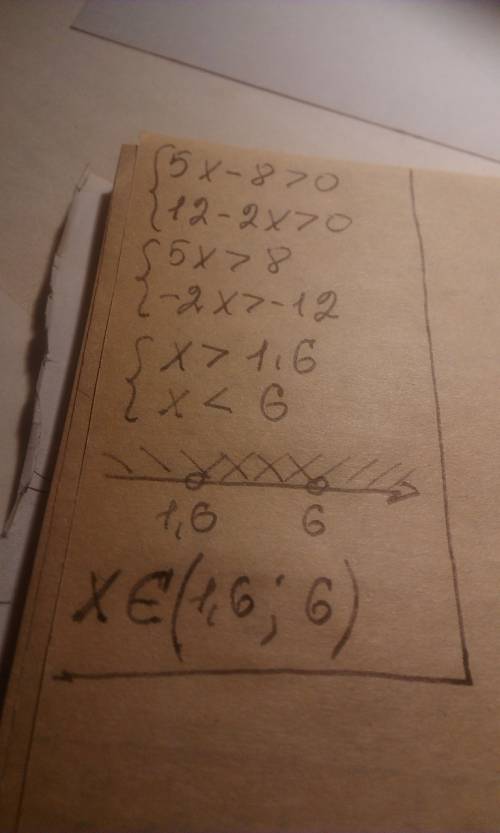 {5x-8>0
{12-2x>0
{5x>8
{-2x>-12
{x>1,6
{x<6
1,6 6
x∈(1,6; 6)